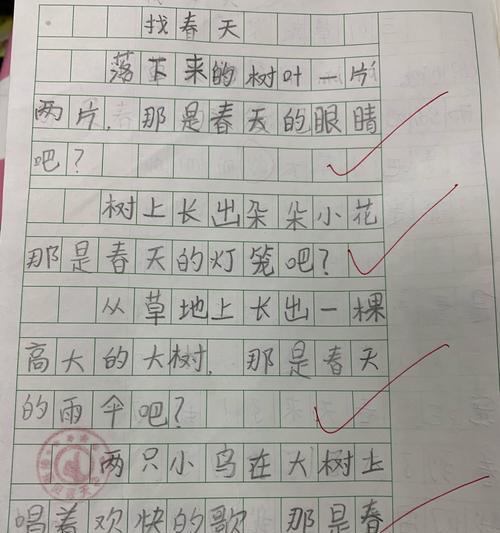 找春天
落下来的树叶一片
两片,那是春天的眼睛
吧?
树上长出朵朵小花
那是春天的灯笼吧?
从草地上长出一棵
高大的大树,那是春天
的雨伞吧?
两只小鸟在大树上
唱着欢快的歌 那是春